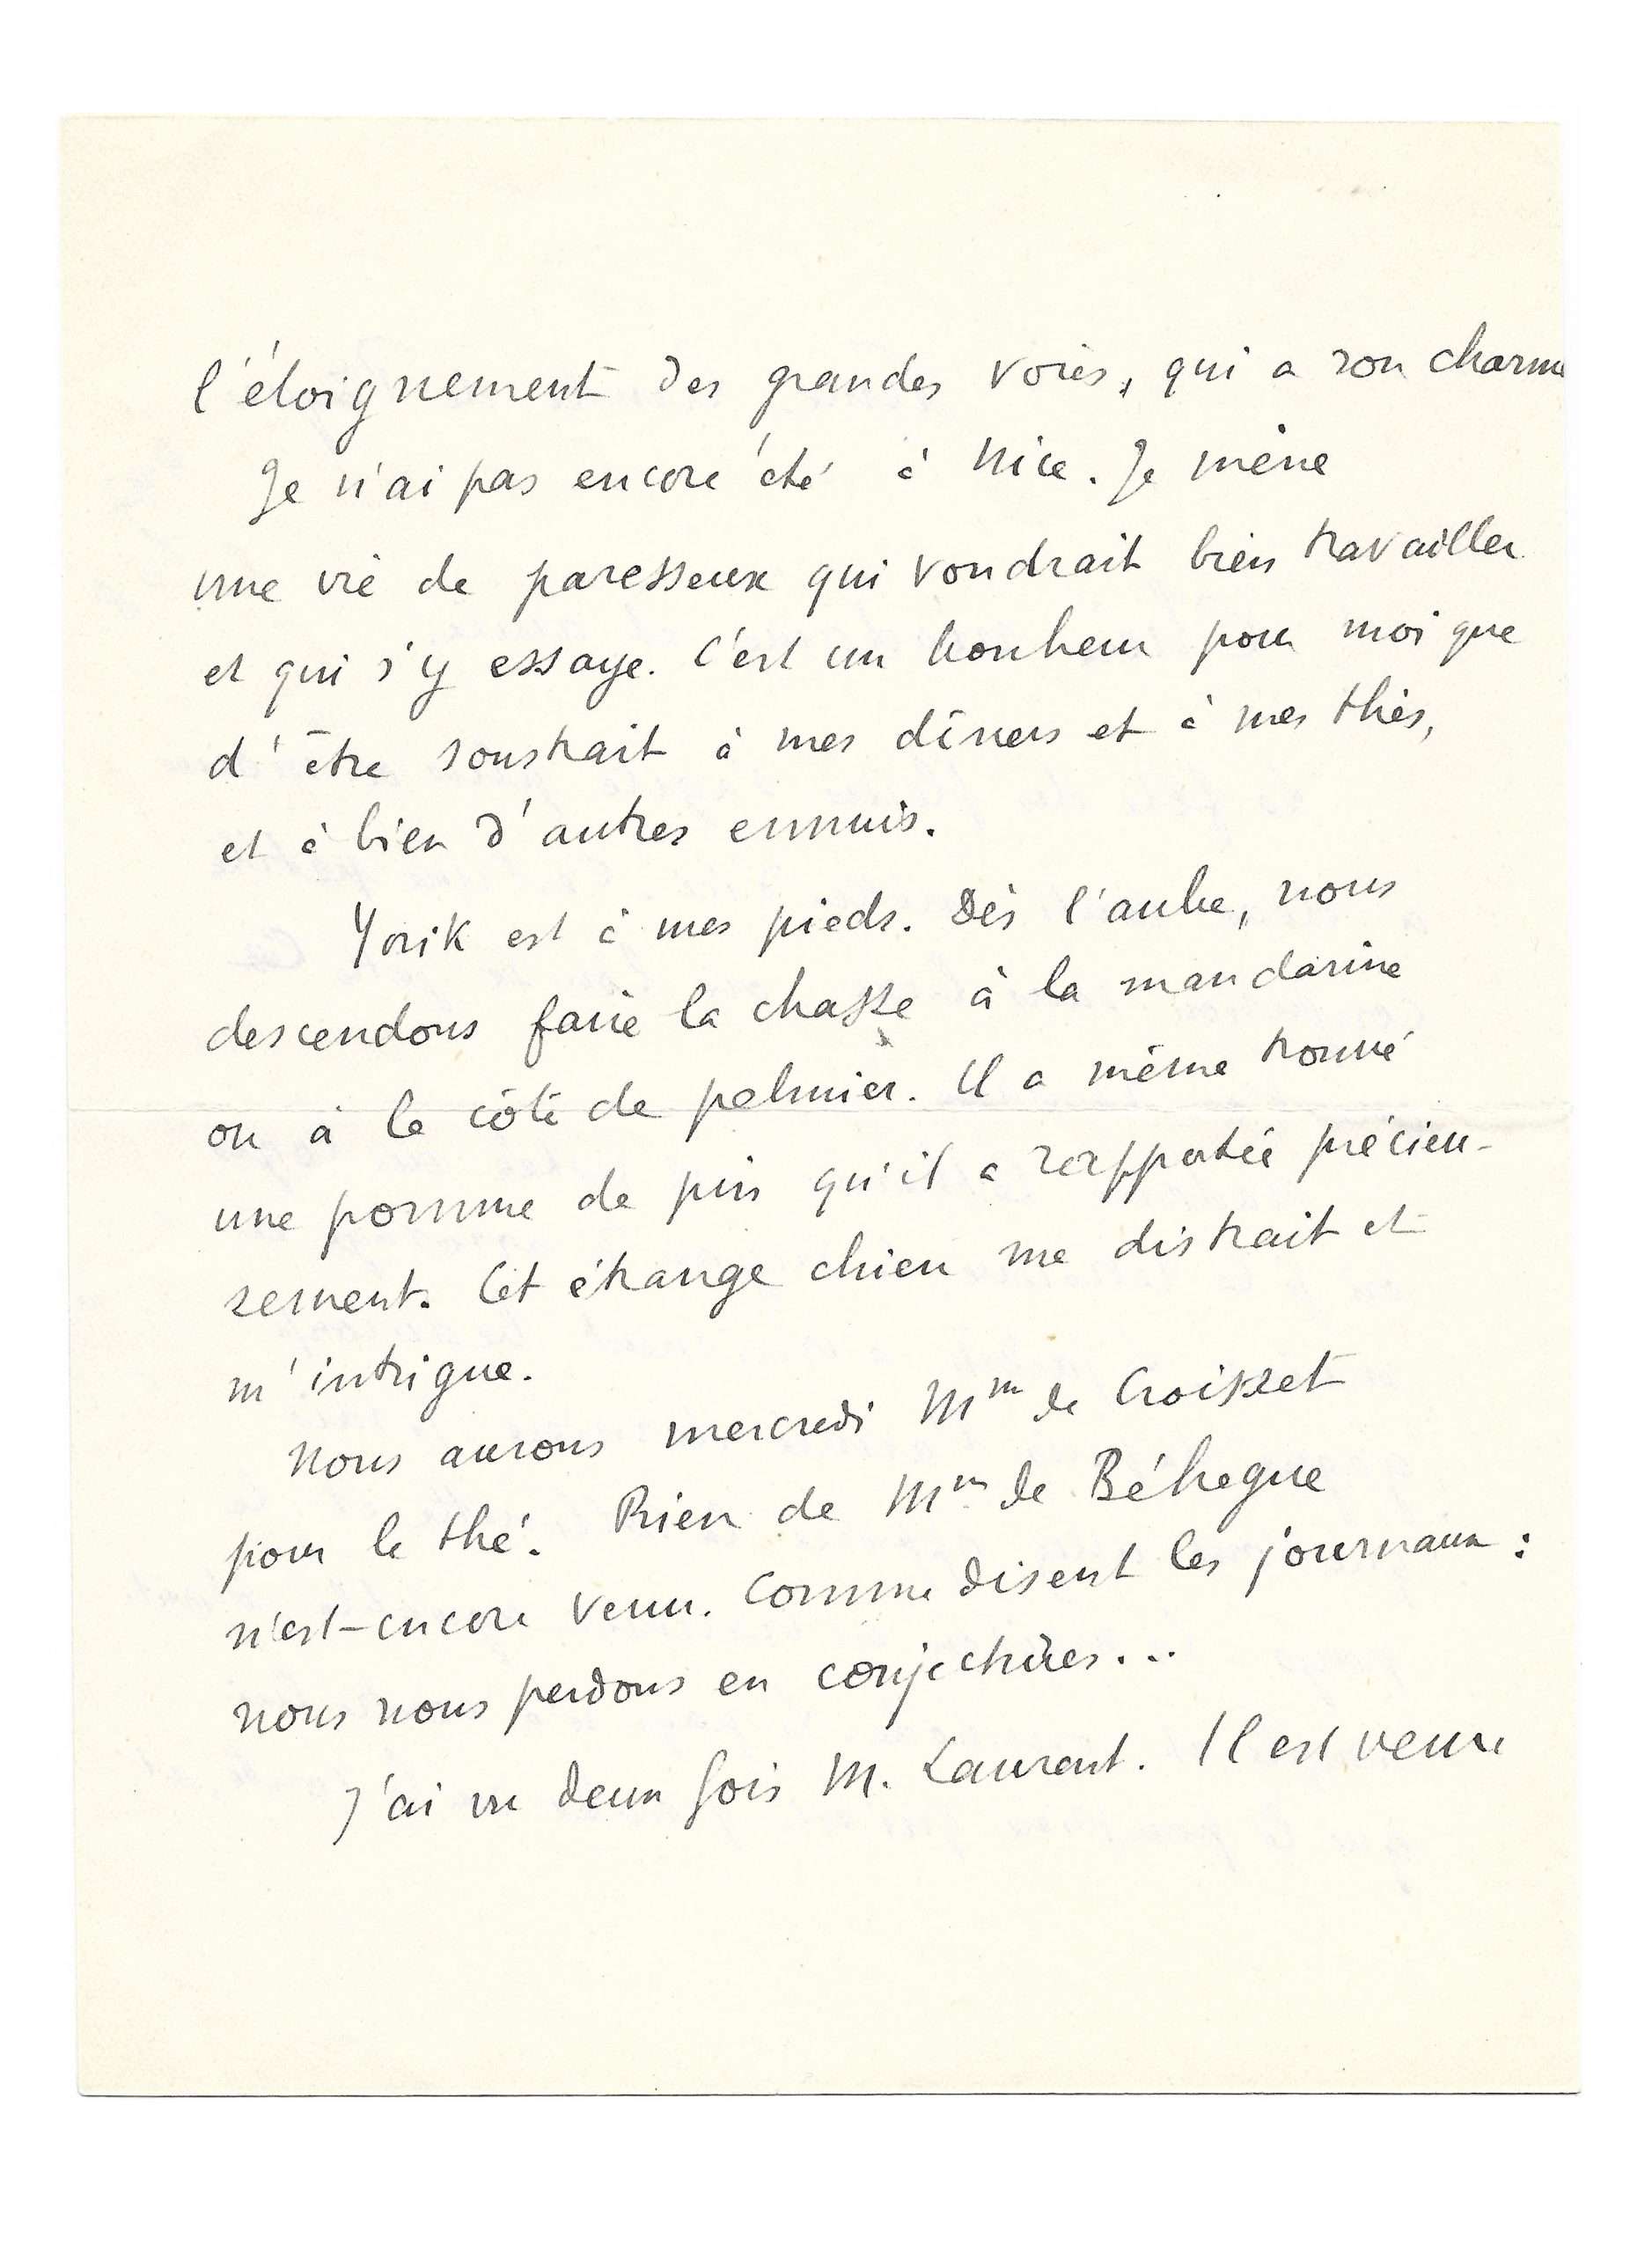 l'éloignement des grandes voies, qui a son charme
Je n'ai pas encore été à Nice. Je mène
une vie de paresseux qui voudrait bien travailler
et qui s'y essaye. C'est un bonheur pour moi que
d'être soustrait à mes dîners et à mes thés,
et à bien d'autres ennuis.
Yorik est à mes pieds. Dès l'aube, nous
descendons faire la chasse à la mandarine
ou à la côte de palmier. Il a même trouvé
une pomme de pin qu'il a rapportée précieu-
sement. Cet étrange chien me distrait et
m'intrigue.
Nous aurons mercredi Mme de Croisset
pour le thé. Rien de Mme de Béhague
n'est encore venu. Comme disent les journaux :
nous nous perdons en conjectures...
J'ai vu deux fois M. Laurent. Il est venu